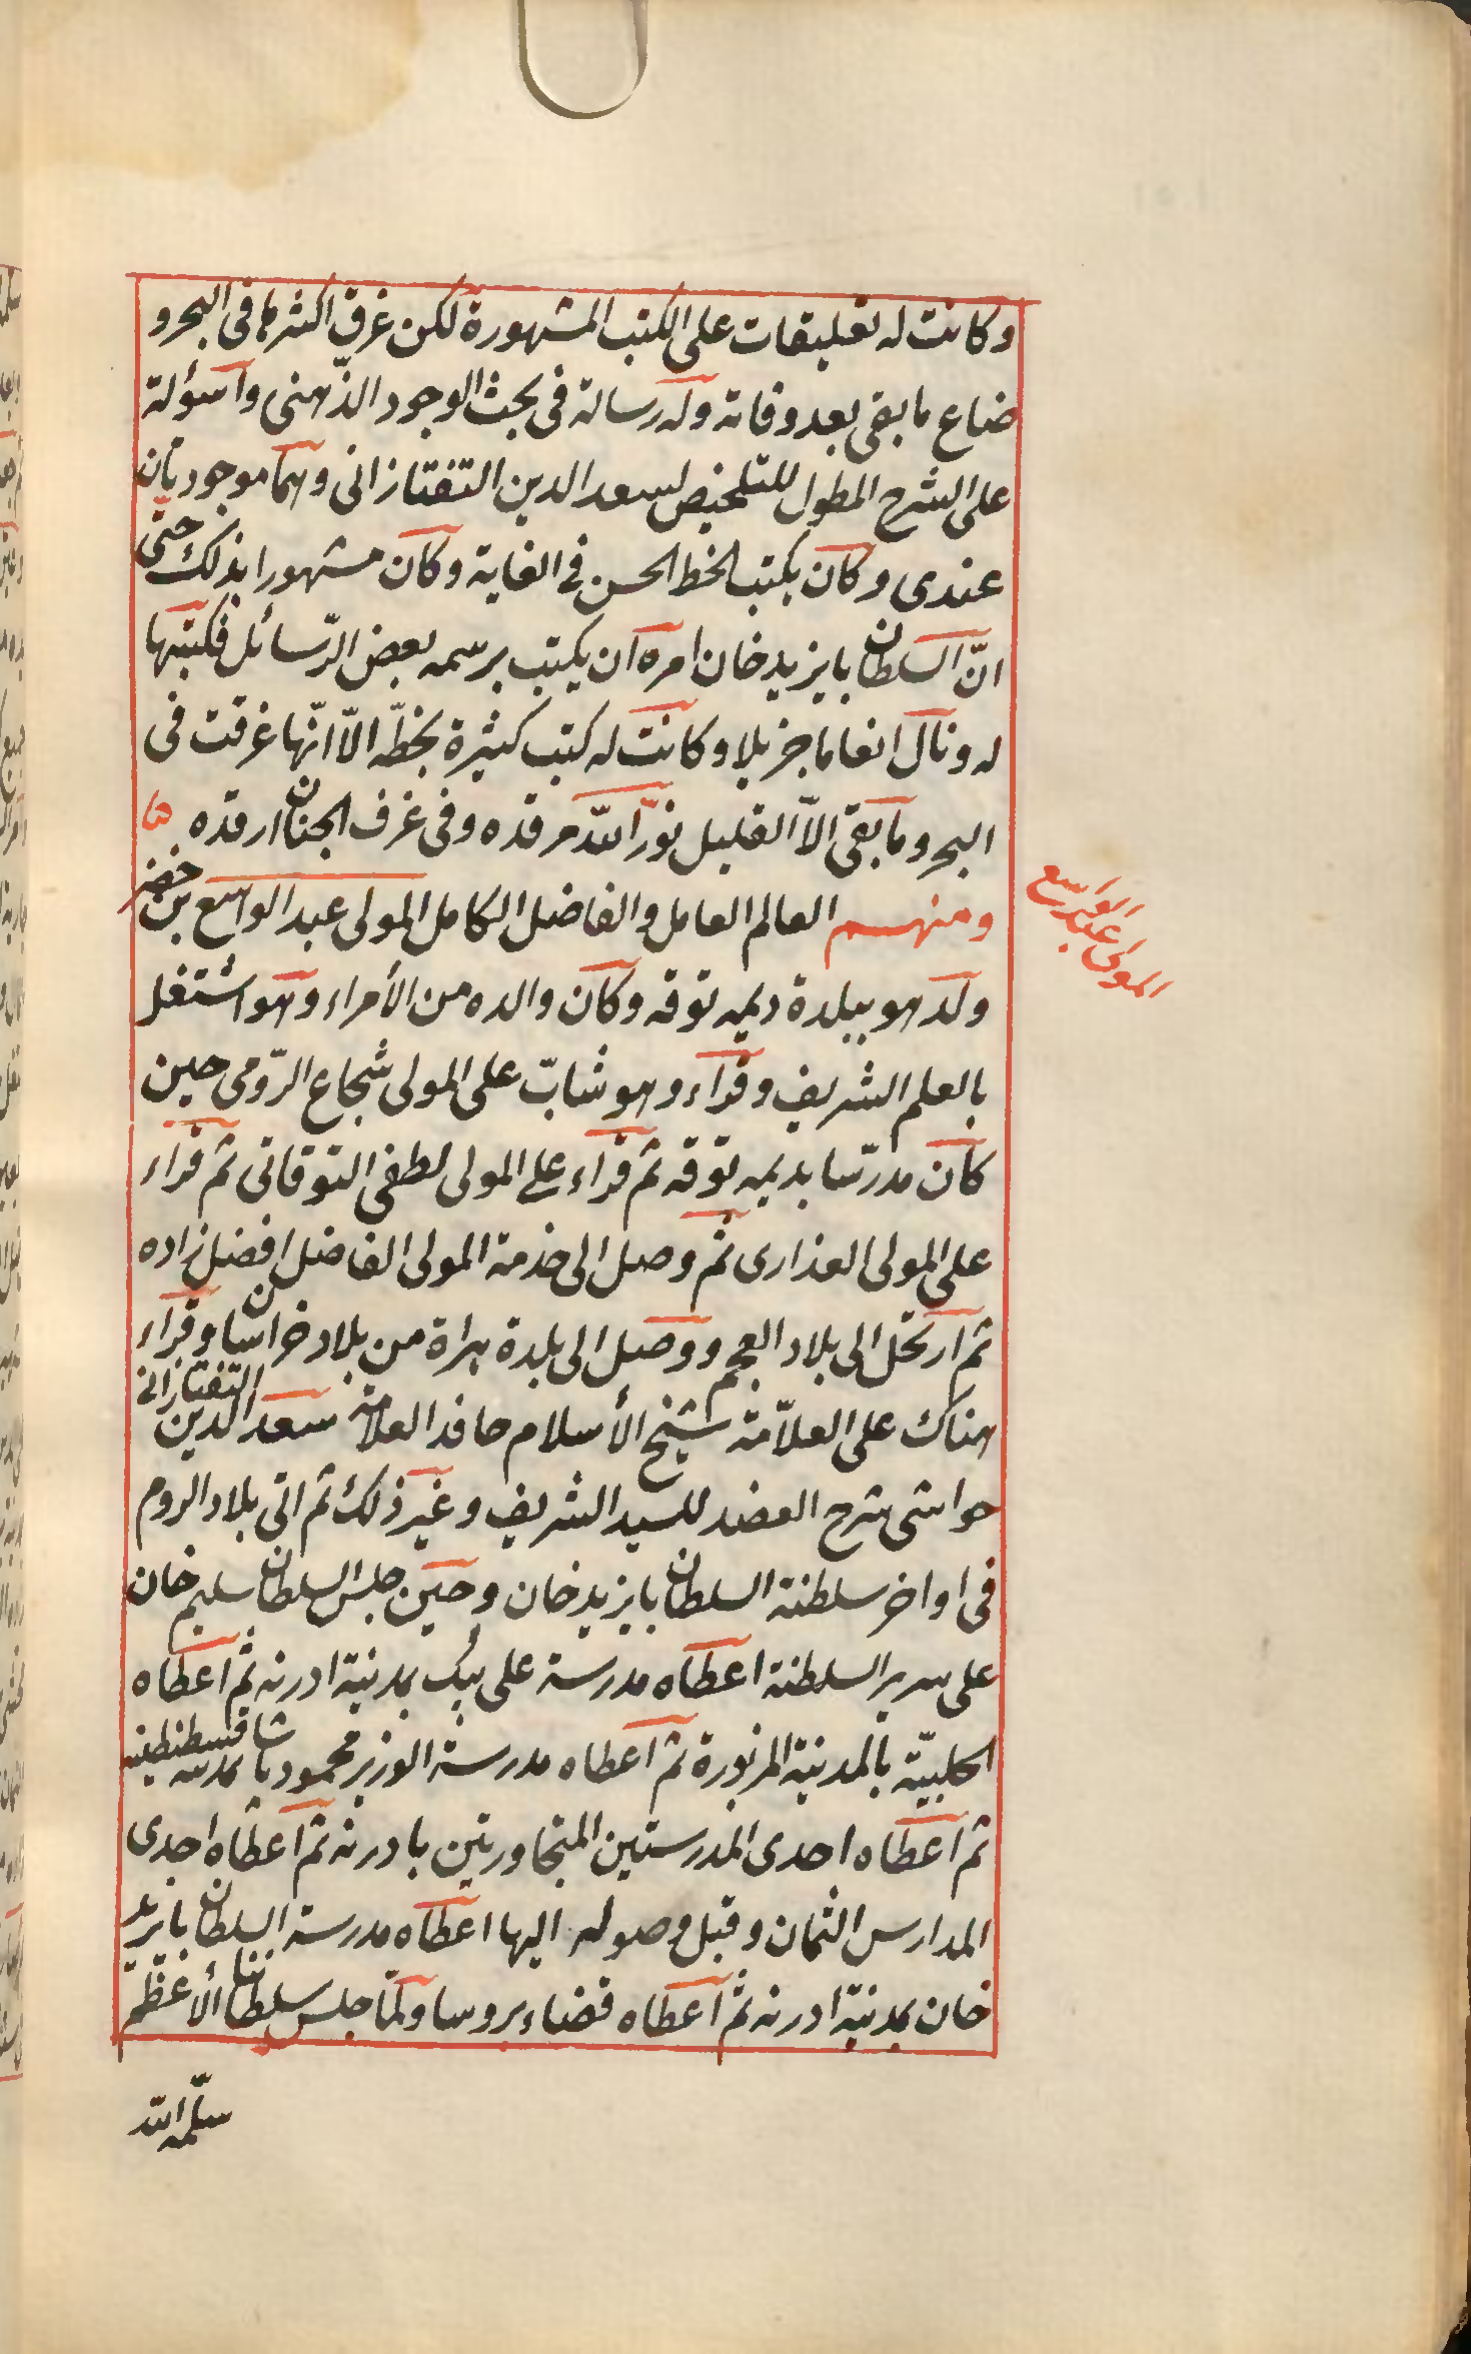 وكانت له تعليقات على الكتب المشهورة لكن غرق اكثرها فى البحر و
ضاع ما بقى بعد وفاته وله رسالة فى بحث الوجود الذّهنى وأسؤلة
على الشرح المطول للتلخيص لسعد الدين التفتازانى وهما موجودتان
عندى وكان يكتب الخط الحسن فى الغاية وكان مشهورا بذلك حتّى
انّ السلطان بايزيد خان امره ان يكتب برسمه بعض الرّسائل فكتبها
له ونال انعاما جزيلا وكانت له كتب كثيرة بخطّه الاّ انّها غرقت فى
البحر وما بقى الاّ القليل نوّر اللّه مرقده وفى غرف الجنان ارقده
ومنهم العالم العامل والفاضل الكامل المولى عبد الواسع بن خضر
المولى عبد الواسع
ولد هو ببلدة ديمه توقه وكان والده من الأمراء وهو اشتغل
بالعلم الشريف وقرأء وهو شابّ على المولى شجاع الرّومى حين
كان مدرّسا بديمه توقه ثم قرأء على المولى لطفى التوقاتى ثم قرأء
على المولى العذارى ثم وصل الى خدمة المولى الفاضل افضل زاده
ثم ارتحل الى بلاد العجم ووصل الى بلدة هراة من بلاد خراسان وقرأء
هناك على العلاّمة شيخ الأسلام حافد العلامة سعد الدين التفتازانى
حواشى شرح العضد للسيد الشريف وغير ذلك ثم اتى بلاد الروم
فى اواخر سلطنة السلطان بايزيد خان وحين جلس السلطان سليم خان
على سرير السلطنة اعطاه مدرسة على بيك بمدينة ادرنه ثم اعطاه
الحلبيّة بالمدينة المزبورة ثم اعطاه مدرسة الوزير محمود باشا بمدينة قسطنطينيه
ثم اعطاه احدى المدرستين المتجاورتين بادرنه ثم اعطاه احدى
المدارس الثمان وقبل وصوله اليها اعطاه مدرسة السلطان بايزيد
خان بمدينة ادرنه ثم اعطاه قضاء بروسا ولمّا جلس سلطاننا الأعظم
سلّمه اللّه